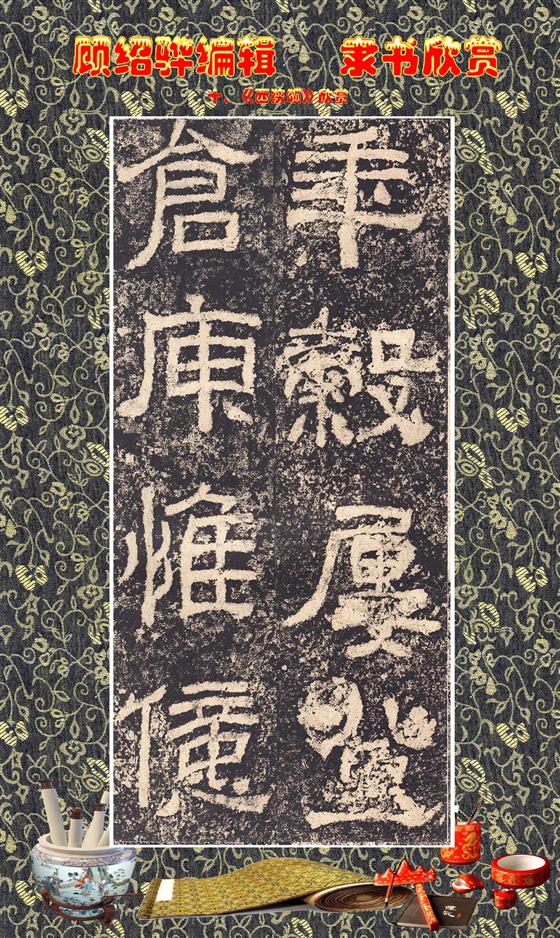 顾绍骅编辑 隶书欣赏
十、《西狭颂》欣赏
年穀屢登
倉庾惟億